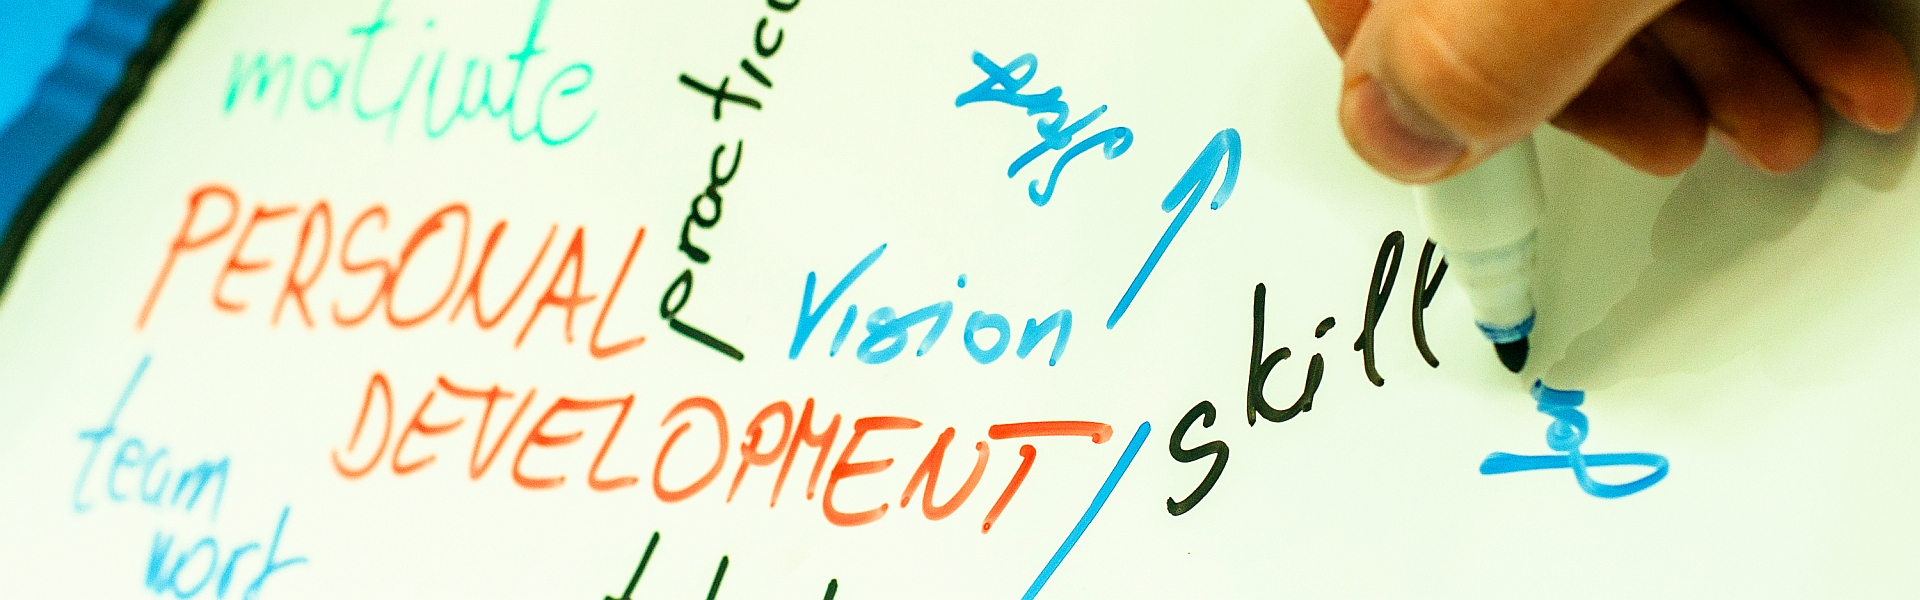 motivate
practic
PERSONAL
vision
skill
DEVELOPMENT
team
work